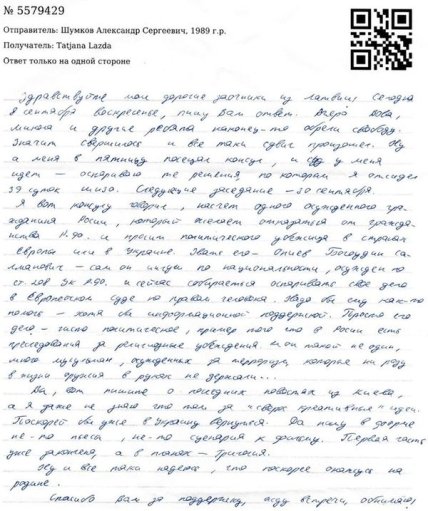 № 5579429
Отправитель: Шумков Александр Сергеевич, 1989 г.р.
Получатель: Tatjana Lazda
Ответ только на одной стороне
Здравствуйте мои дорогие заочники из Латвии! Сегодня
8 сентября воскресенье, пишу Вам ответ. Вчера Вова,
и другие ребята наконец-то обрели свободу.
Значит свершилось и все таки сдвиг произошел. Ну
а меня в пятницу посещал консул, и суд у меня
идет – оспариваю те решения, по которым я отсидел
39 суток шизо. Следующее заседание – 30 сентября.
Я вот консулу говорил, насчет одного осужденного гра-
жданина России, который желает отказаться от граждан-
ства Р.Ф. и просит политического убежища в странах
Европы или в Украине. Зовут его –
– сам он ингуш по национальности, осужден по
ст. 208 УК РФ. и сейчас собирается оспаривать свое дело
в Европейском суде по правам человека. Надо бы ему как-то
помочь – хотя бы информационной поддержкой. Просто его
дело – чисто политическое, пример того что в России есть
преследования за религиозные убеждения. и он такой не один,
много мусульман, осужденных за терроризм, которые ни разу
в жизни оружия в руках не держали...
Да, вот пишите о последних новостях из Киева,
а я даже не знаю что там за "сверх креативные" идеи.
Поскорей бы уже в Украину вернуться. Да пишу в
не-то пьеса, не-то сценарий к фильму. Первая часть
уже закончена, а в планах – трилогия.
Ну и все таки надеюсь, что поскорее окажусь на
родине.
Спасибо Вам за поддержку, жду встречи, обнимаю!